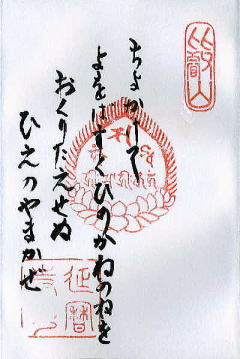 比叡山
ちよかけて
よをはすくひのかねのねを
おくりたえせぬ
ひえのやまかぜ
延暦